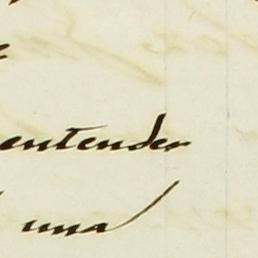 entender
una